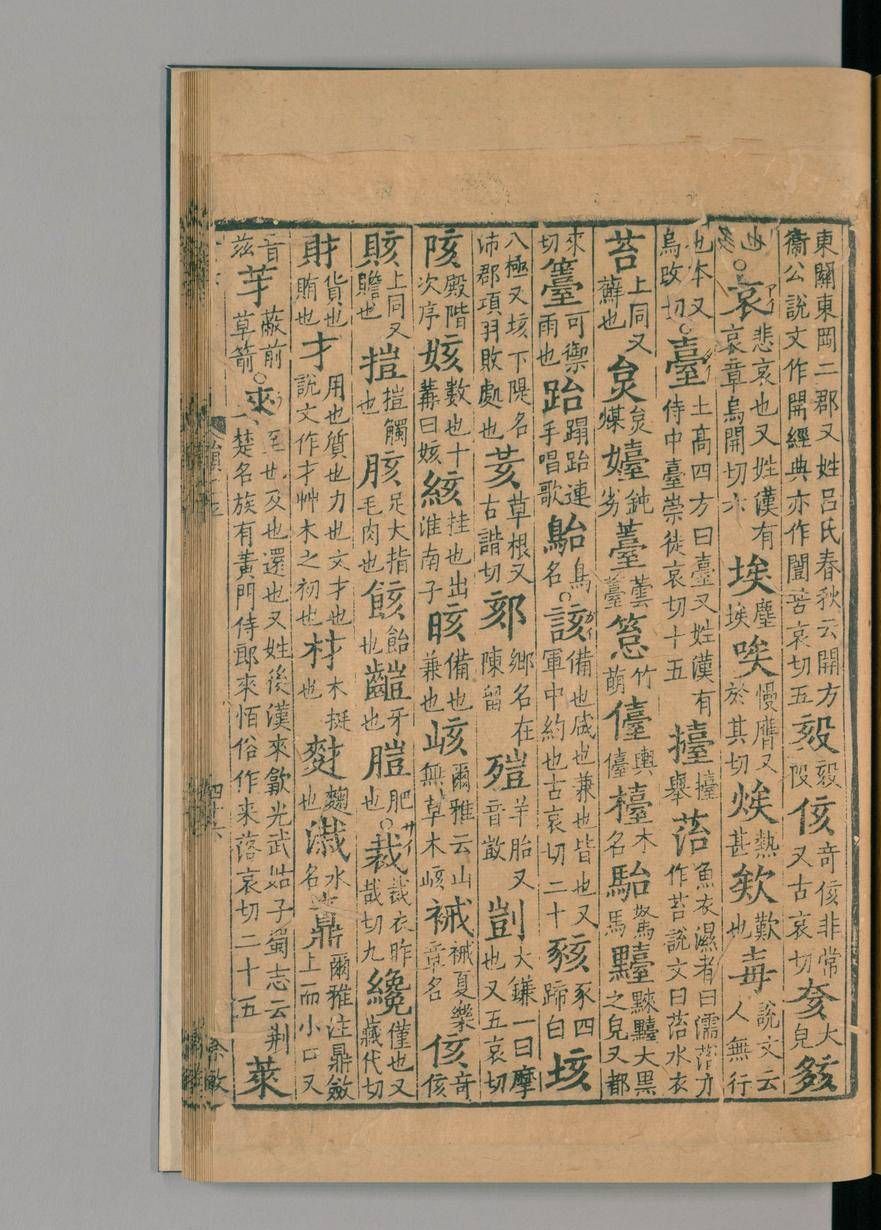 東關東岡二郡又姓呂氏春秋云開方衞公說文作開經典亦作闓苦哀切五侅奇侅非常又古哀切奒大皃
也哀悲哀也又姓漢有哀章烏開切六埃塵埃唉慢譍又於其切熱甚欸歎也毐說文云人無行
也本又烏改切臺土高四方曰臺又姓漢有侍中臺崇徒哀切十五擡擡舉菭魚衣濕者曰濡菭又作苔說文曰菭水衣
苔上同又蘚也炱炱煤嬯鈍劣薹蕓薹䈚竹萌儓輿儓㯂木名駘駑馬大黑之皃又都
來切籉可禦雨也跆蹋跆連手唱歌鳥名該備也咸也兼也皆也又軍中約也古哀切二十豥豕四蹄白垓
八極又垓下隄名沛郡項羽敗處也荄草根又古諧切郂鄉名在陳留羊胎又音剴大鎌一曰摩也又五哀切
陔殿階次序姟數也十冓曰姟絯挂也出淮南子晐備也兼也峐爾雅云山無草木峐祴祴夏樂章名侅奇侅
賅上同又贍也觸也胲足大指毛肉也飴也牙也肥也裁裁衣昨哉切九纔僅也又藏代切
財貨也賄也才用也質也力也文才也說文作才艸木之初也材木挺也麴也溨水名鼒爾雅注鼎斂上而小口又
音兹草蔽前來至也及也還也又姓後漢來歙光武姑子蜀志云荊楚名族有黃門侍郎來恒俗作来落哀切二十五萊
四十六
余敏